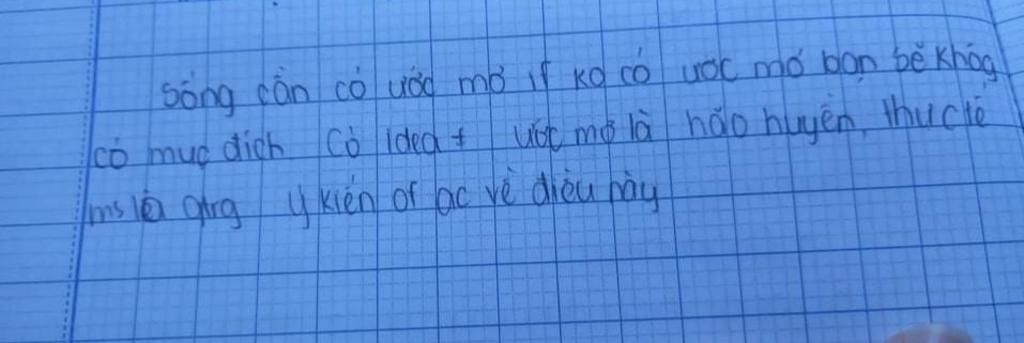 Sống cần có ước mơ if ko có ước mơ bạn sẽ không
có mục đích Có idea + ước mơ là hão huyền, thực tế
ms là qtrg ý kiến of ac về điều này